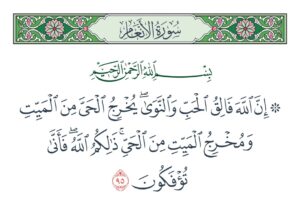 سُورَةُ الأَنْعَامِ
بِسْمِ ٱللَّهِ ٱلرَّحْمَٰنِ ٱلرَّحِيمِ
۞ إِنَّ ٱللَّهَ فَالِقُ ٱلْحَبِّ وَٱلنَّوَىٰۖ يُخْرِجُ ٱلْحَيَّ مِنَ ٱلْمَيِّتِ
وَمُخْرِجُ ٱلْمَيِّتِ مِنَ ٱلْحَيِّۚ ذَٰلِكُمُ ٱللَّهُۖ فَأَنَّىٰ
تُؤْفَكُونَ ٩٥